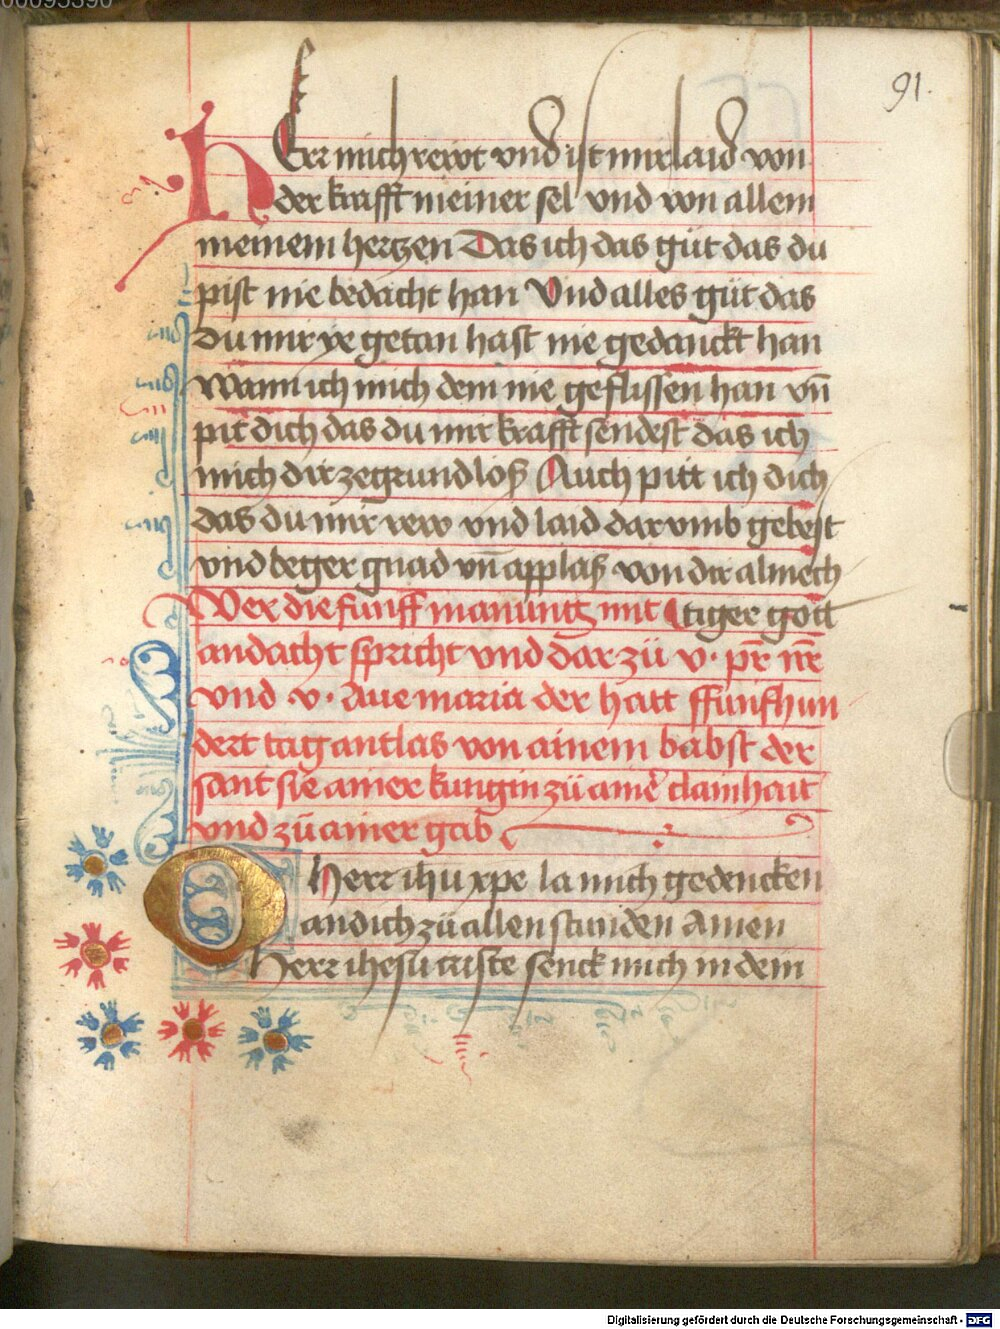 00095390
91.
HErr mich rewt vnd ist mir laid von
der krafft meiner sel vnd von allem
meinem hertzen Das ich das gůt das du
pist nie bedacht han Vnd alles gůt das
du mir ye getan hast nie gedanckt han
wann ich mich dem nie geflissen han vn̄
pit dich das du mir krafft sendest das ich
mich dir ze grund loß Auch pitt ich dich
das du mir rew vnd laid dar vmb gebest
vnd beger gnad vn̄ applaß von dir almech
Wer die funff manung mit tiger gott
andacht spricht vnd dar zů v. pr̄ nr̄
vnd .v. Aue maria der hatt ffunfhun
dert tag antlas von ainem babst der
sant sie ainer kungin zů ainer clainhait
vnd zů ainer gab
O herr ihu xpe la mich gedencken
an dich zů allen stunden Amen
Herr ihesu criste senck mich in dein
Digitalisierung gefördert durch die Deutsche Forschungsgemeinschaft - DFG